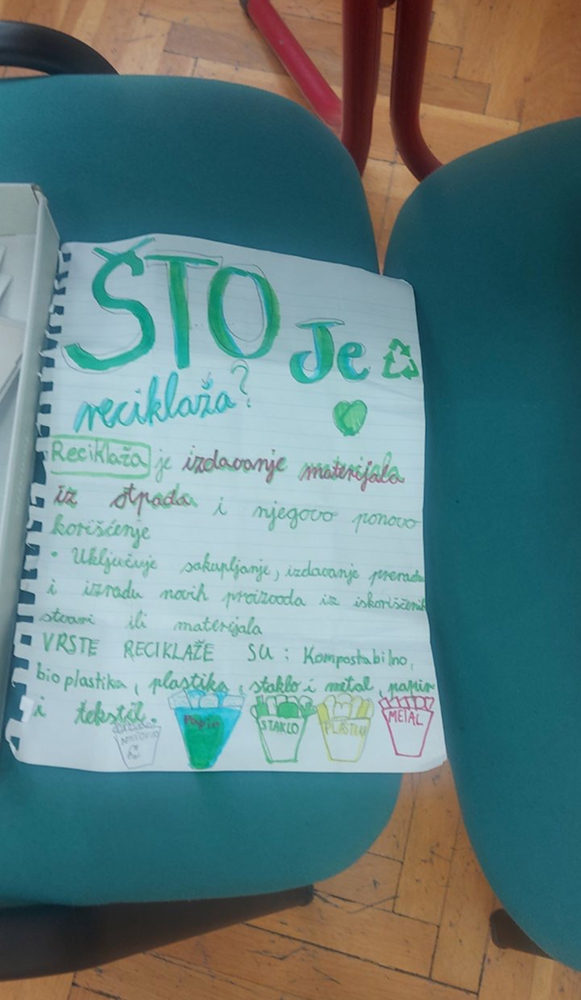 ŠTO Je
reciklaža?
Reciklaža je izdavanje materijala
iz otpada i njegovo ponovo
korišćenje
• Uključuje sakupljanje, izdavanje prerada
i izradu novih proizvoda iz iskorišćenih
stvari ili materijala
VRSTE RECIKLAŽE SU: Kompostabilno,
bioplastika, plastika, staklo i metal, papir
i tekstil.
PAPIR STAKLO PLASTIKA METAL